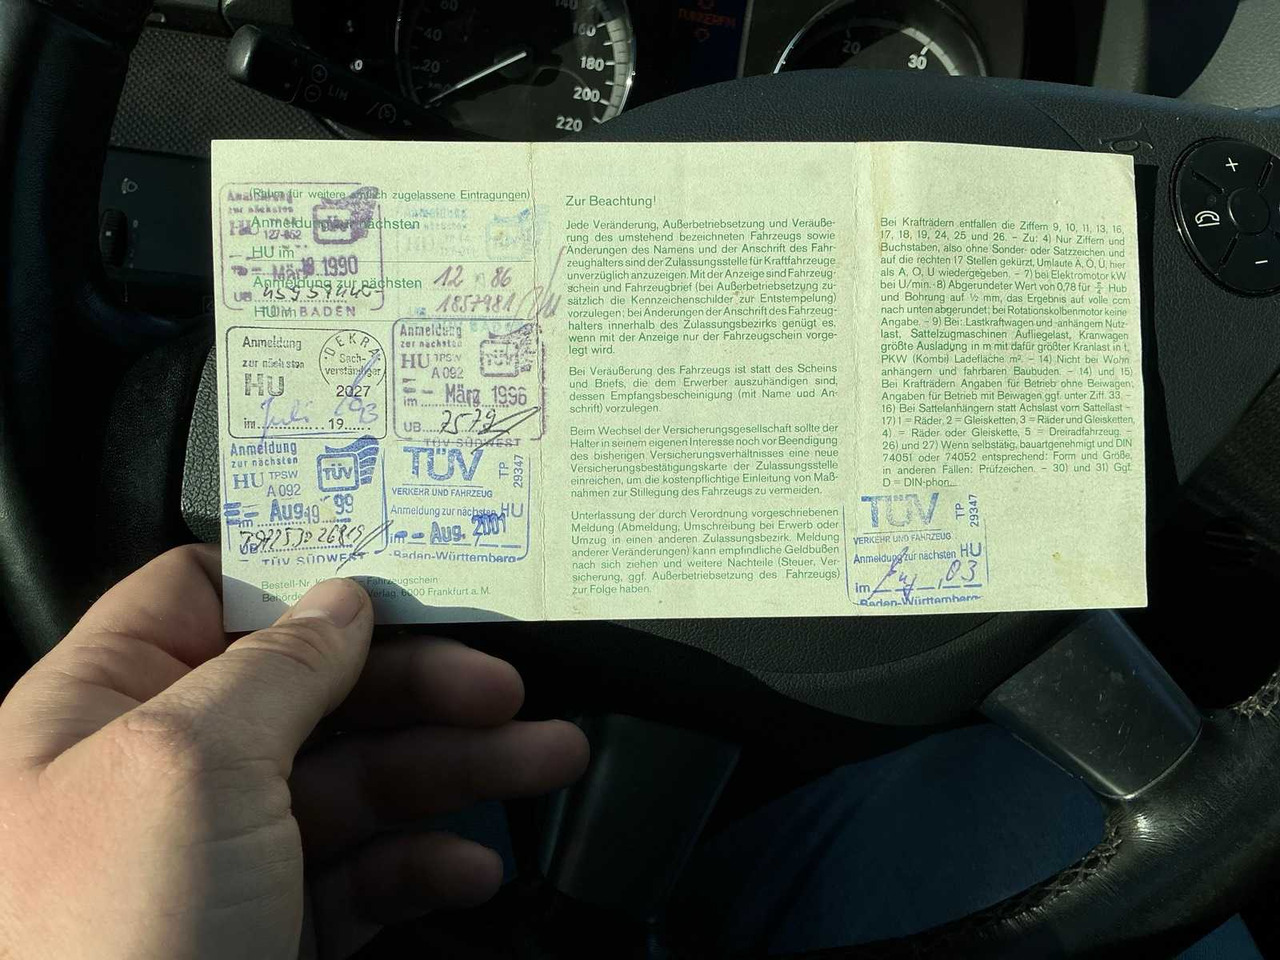 180
200
220
20
30
LIM
(Raum für weitere amtlich zugelassene Eintragungen)
Anmeldung zur nächsten
HU im
12 86
Anmeldung zur nächsten
1857981
HU im
Anmeldung
zur nächsten
HU
TÜV
März 1990
UB
BADEN
Anmeldung
zur nächsten
HU
im Juli 1993
DEKRA
Sach-
verständiger
2027
Anmeldung
zur nächsten
HU TPSW
A 092
TÜV
im März 1996
UB 7579
TÜV SÜDWEST
Anmeldung
zur nächsten
HU TPSW
A 092
TÜV
im Aug 19 99
UB
TÜV SÜDWEST
TÜV
VERKEHR UND FAHRZEUG
TP
29347
Anmeldung zur nächsten HU
im Aug. 2001
Baden-Württemberg
Bestell-Nr.
Fahrzeugschein
Verlag, 6000 Frankfurt a. M.
Zur Beachtung!
Jede Veränderung, Außerbetriebsetzung und Veräuße-
rung des umstehend bezeichneten Fahrzeugs sowie
Änderungen des Namens und der Anschrift des Fahr-
zeughalters sind der Zulassungsstelle für Kraftfahrzeuge
unverzüglich anzuzeigen. Mit der Anzeige sind Fahrzeug-
schein und Fahrzeugbrief (bei Außerbetriebsetzung zu-
sätzlich die Kennzeichenschilder zur Entstempelung)
vorzulegen; bei Änderungen der Anschrift des Fahrzeug-
halters innerhalb des Zulassungsbezirks genügt es,
wenn mit der Anzeige nur der Fahrzeugschein vorge-
legt wird.
Bei Veräußerung des Fahrzeugs ist statt des Scheins
und Briefs, die dem Erwerber auszuhändigen sind,
dessen Empfangsbescheinigung (mit Name und An-
schrift) vorzulegen.
Beim Wechsel der Versicherungsgesellschaft sollte der
Halter in seinem eigenen Interesse noch vor Beendigung
des bisherigen Versicherungsverhältnisses eine neue
Versicherungsbestätigungskarte der Zulassungsstelle
einreichen, um die kostenpflichtige Einleitung von Maß-
nahmen zur Stillegung des Fahrzeugs zu vermeiden.
Unterlassung der durch Verordnung vorgeschriebenen
Meldung (Abmeldung, Umschreibung bei Erwerb oder
Umzug in einen anderen Zulassungsbezirk. Meldung
anderer Veränderungen) kann empfindliche Geldbußen
nach sich ziehen und weitere Nachteile (Steuer, Ver-
sicherung, ggf. Außerbetriebsetzung des Fahrzeugs)
zur Folge haben.
Bei Krafträdern entfallen die Ziffern 9, 10, 11, 13, 16,
17, 18, 19, 24, 25 und 26. – Zu: 4) Nur Ziffern und
Buchstaben, also ohne Sonder- oder Satzzeichen und
auf die rechten 17 Stellen gekürzt, Umlaute Ä, Ö, Ü, hier
als A, O, U wiedergegeben. – 7) bei Elektromotor kW
bei U/min.- 8) Abgerundeter Wert von 0,78 für π/4 Hub
und Bohrung auf ½ mm, das Ergebnis auf volle ccm
nach unten abgerundet; bei Rotationskolbenmotor keine
Angabe. – 9) Bei: Lastkraftwagen und -anhängern Nutz-
last, Sattelzugmaschinen Aufliegelast, Kranwagen
größte Ausladung in m mit dafür größter Kranlast in t,
PKW (Kombi) Ladefläche m². – 14) Nicht bei Wohn
anhängern und fahrbaren Baubuden. – 14) und 15)
Bei Krafträdern Angaben für Betrieb ohne Beiwagen;
Angaben für Betrieb mit Beiwagen ggf. unter Ziff. 33. –
16) Bei Sattelanhängern statt Achslast vorn Sattellast –
17) 1 = Räder, 2 = Gleisketten, 3 = Räder und Gleisketten,
4) = Räder oder Gleiskette, 5 = Dreiradfahrzeug. –
26) und 27) Wenn selbsttätig, bauartgenehmigt und DIN
74051 oder 74052 entsprechend: Form und Größe,
in anderen Fällen: Prüfzeichen. – 30) und 31) Ggf.
D = DIN-phon
TÜV
VERKEHR UND FAHRZEUG
TP
29347
Anmeldung zur nächsten HU
im Aug 03
Baden-Württemberg